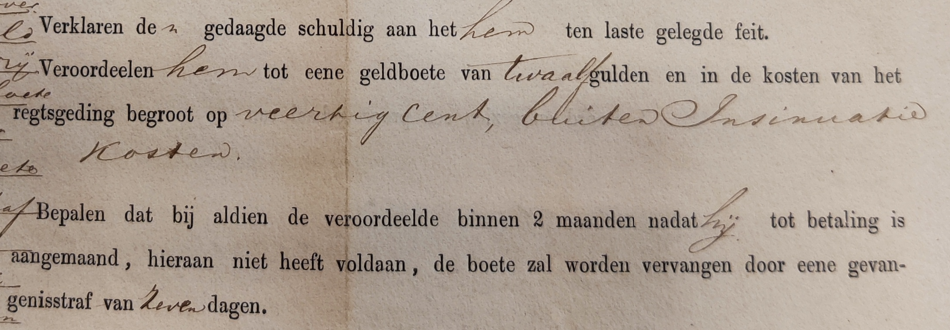 Verklaren den gedaagde schuldig aan het hem ten laste gelegde feit.
Veroordeelen hem tot eene geldboete van twaalf gulden en in de kosten van het
regtsgeding begroot op veertig cent, buiten Insinuatie
Kosten.
Bepalen dat bij aldien de veroordeelde binnen 2 maanden nadat hij tot betaling is
aangemaand, hieraan niet heeft voldaan, de boete zal worden vervangen door eene gevan-
genisstraf van zeven dagen.